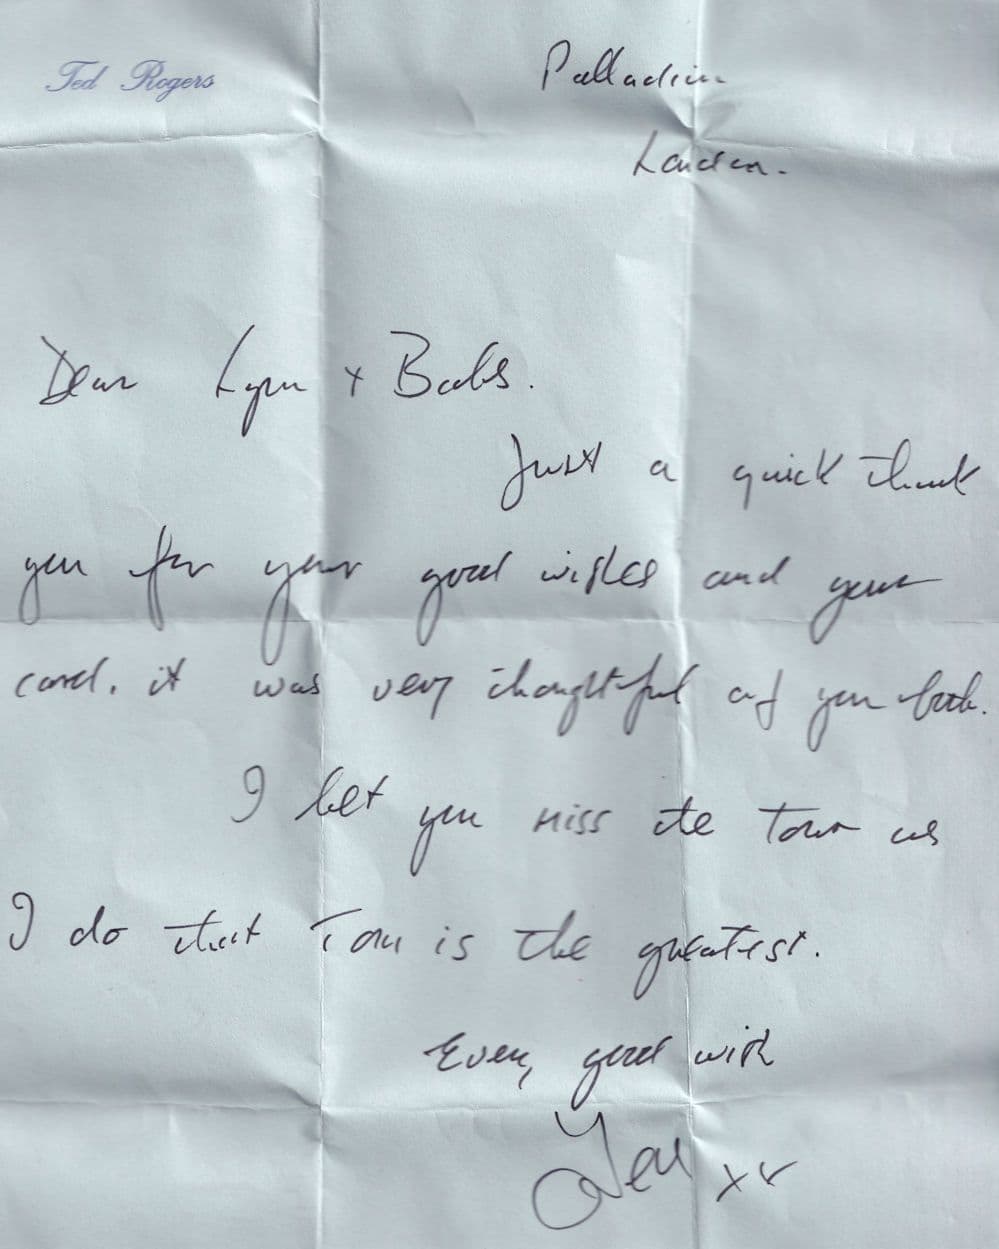 Ted Rogers
Palladium
London.
Dear Lynn + Babs.
Just a quick thank
you for your good wishes and your
card. it was very thoughtful of you both.
I bet you miss the Tour as
I do that Tom is the greatest.
Every good wish
Ted xx